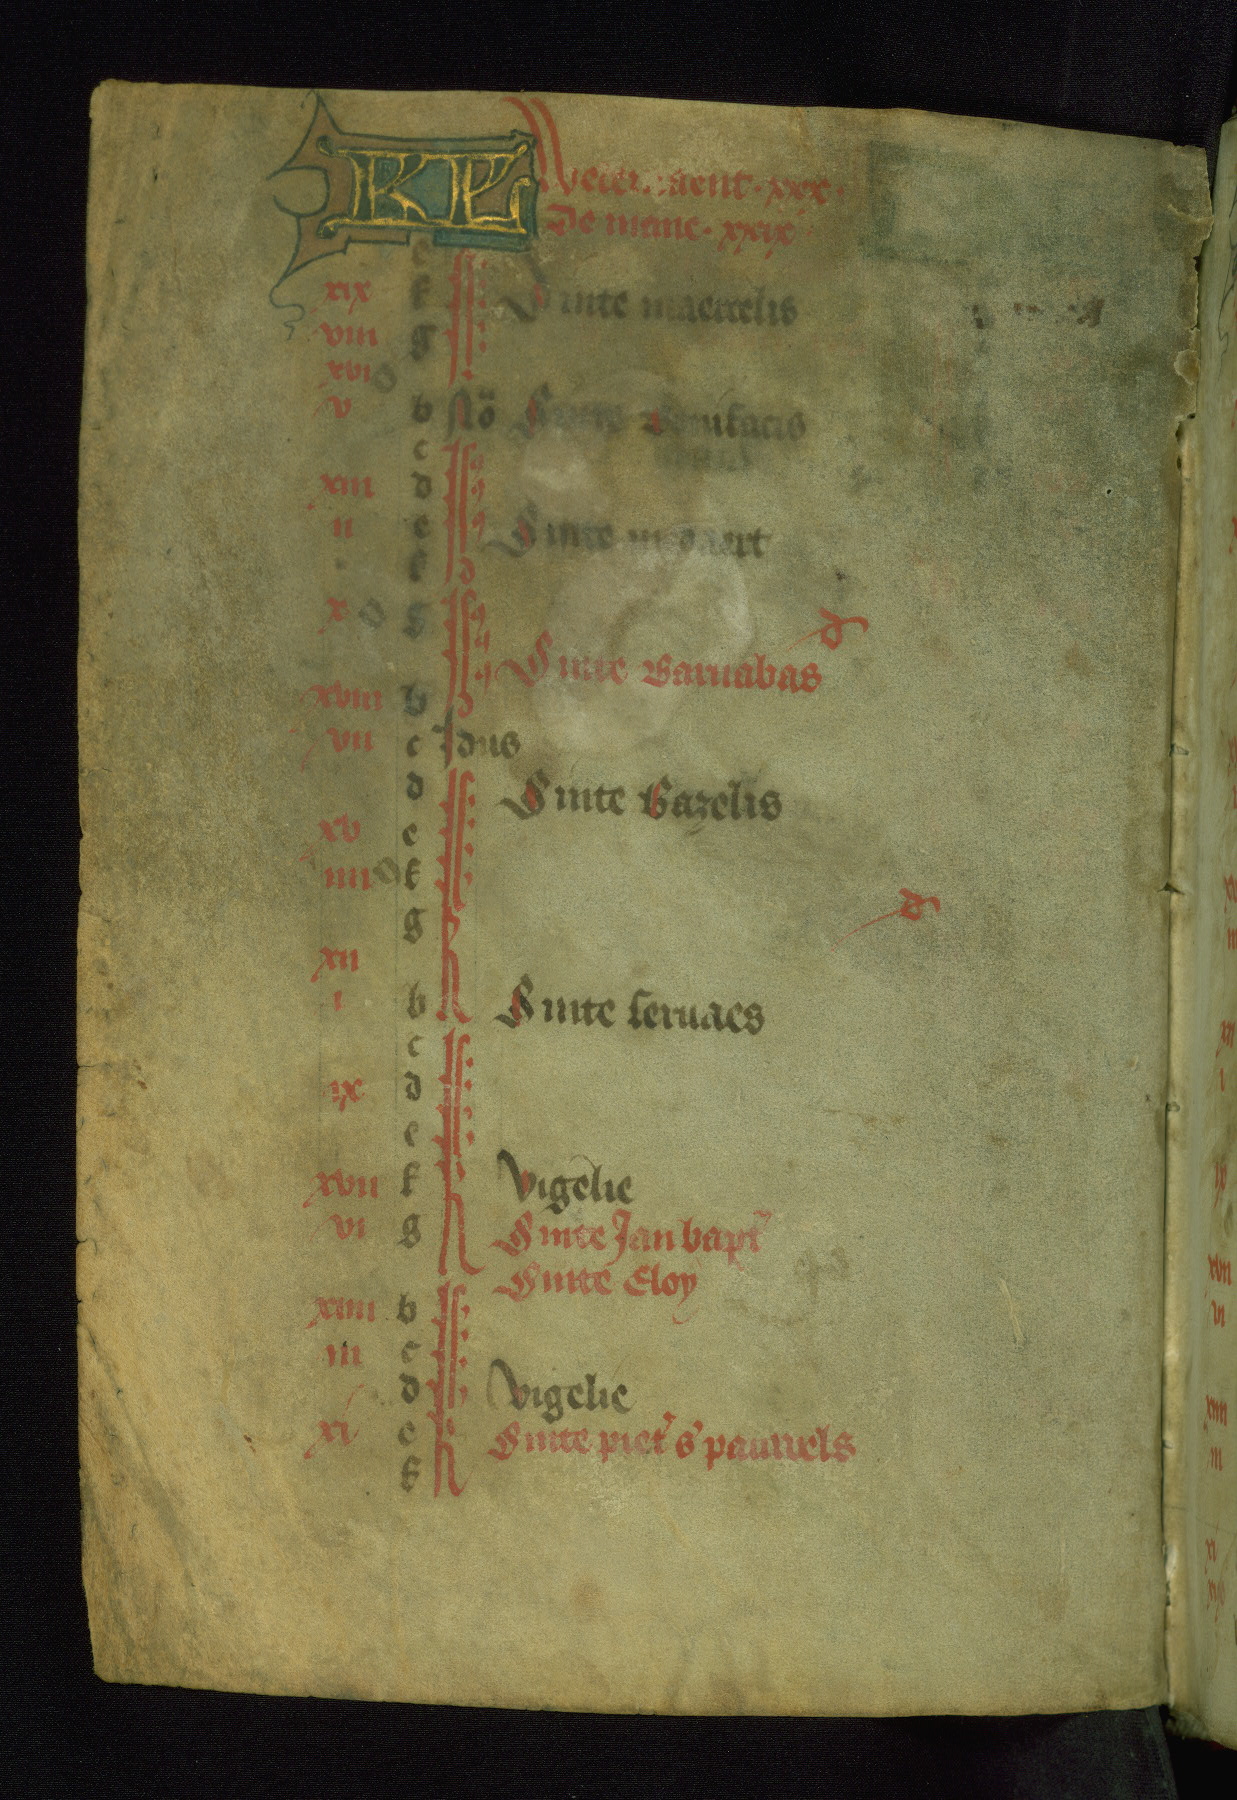 KL
xxx
De mane xxix
e
xix f Sinte maercelis
viii g
xvi
v b No Sinte Bonifacis
c
xiii d
ii e Sinte medaert
f
x g
Sinte Barnabas
xviii b
vii c Idus
d Sinte Bazelis
xv e
iiii f
g
xii
i b Sinte seruaes
c
ix d
e
xvii f Vigelie
vi g Sinte Jan bapt
Sinte Eloy
xiiii b
iii c
d Vigelie
xi e Sinte piet s pauwels
f